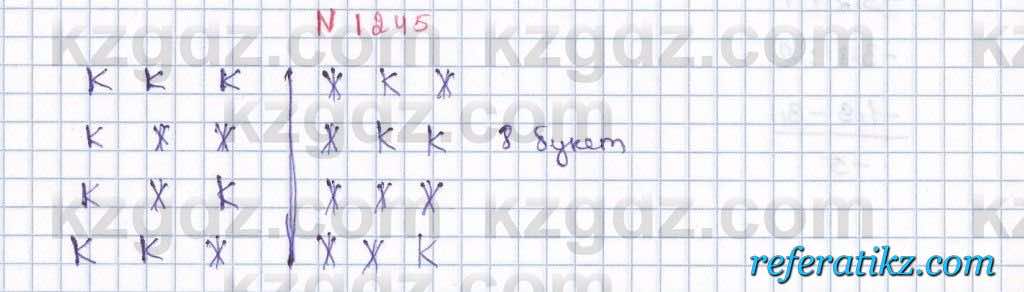 N 1245
kzgdz.com kzgdz.com
К К К Ж К Ж
kzgdz.com
К Ж Ж Ж К К 8 букет
К Ж К Ж Ж Ж
kzgdz.com kzgdz.com
К К Ж Ж Ж К
referatikz.com